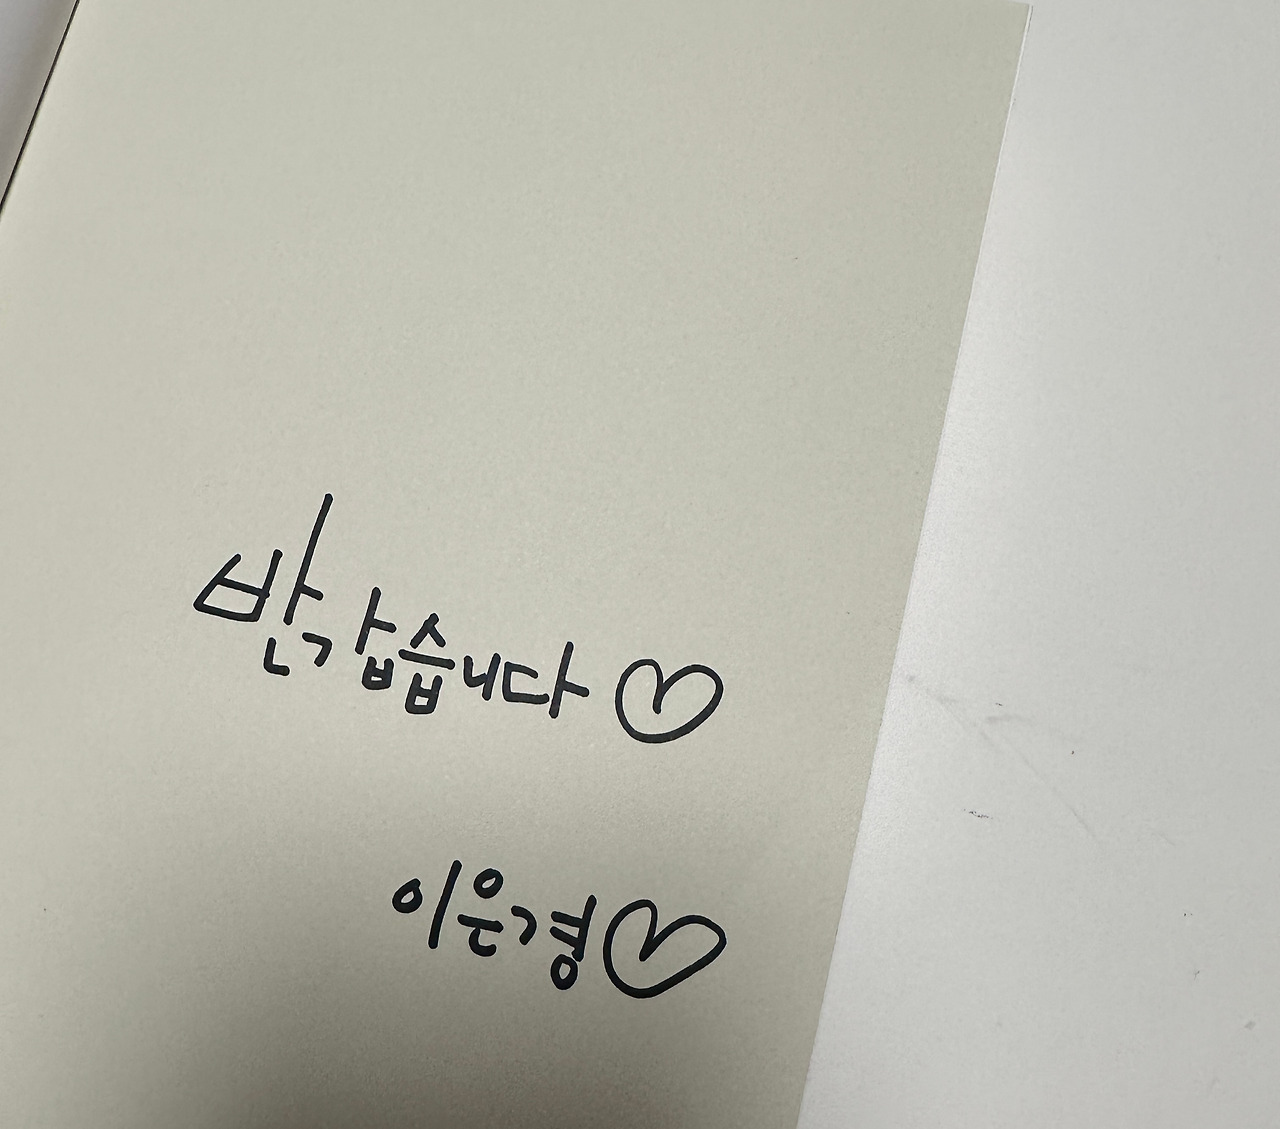 반갑습니다 ♡
이은경♡